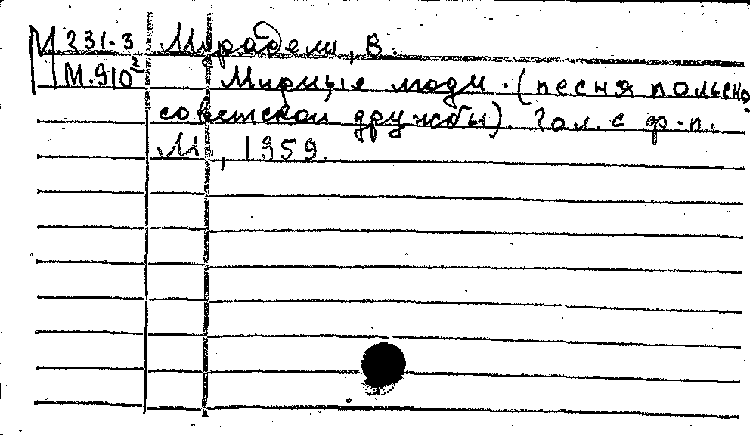 М 231-3 Мурадели, В.
М.910² Мирные люди. (песня польско-
советской дружбы). Гол. с ф-п.
М., 1959.